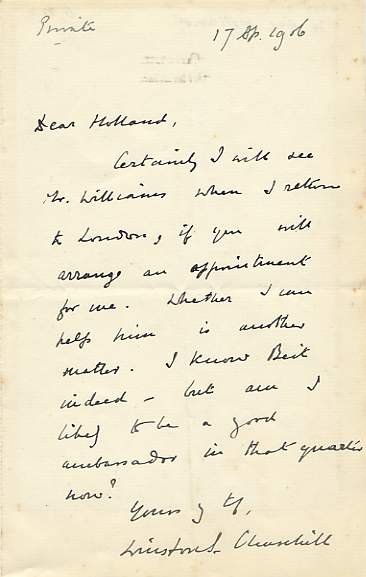 Private
17 Ap. 1906
Dear Holland,
Certainly I will see
Mr. Williams when I return
to London, if you will
arrange an appointment
for me. Whether I can
help him is another
matter. I know Beit
indeed – but am I
likely to be a good
ambassador in that quarter
now?
Yours
Winston S. Churchill